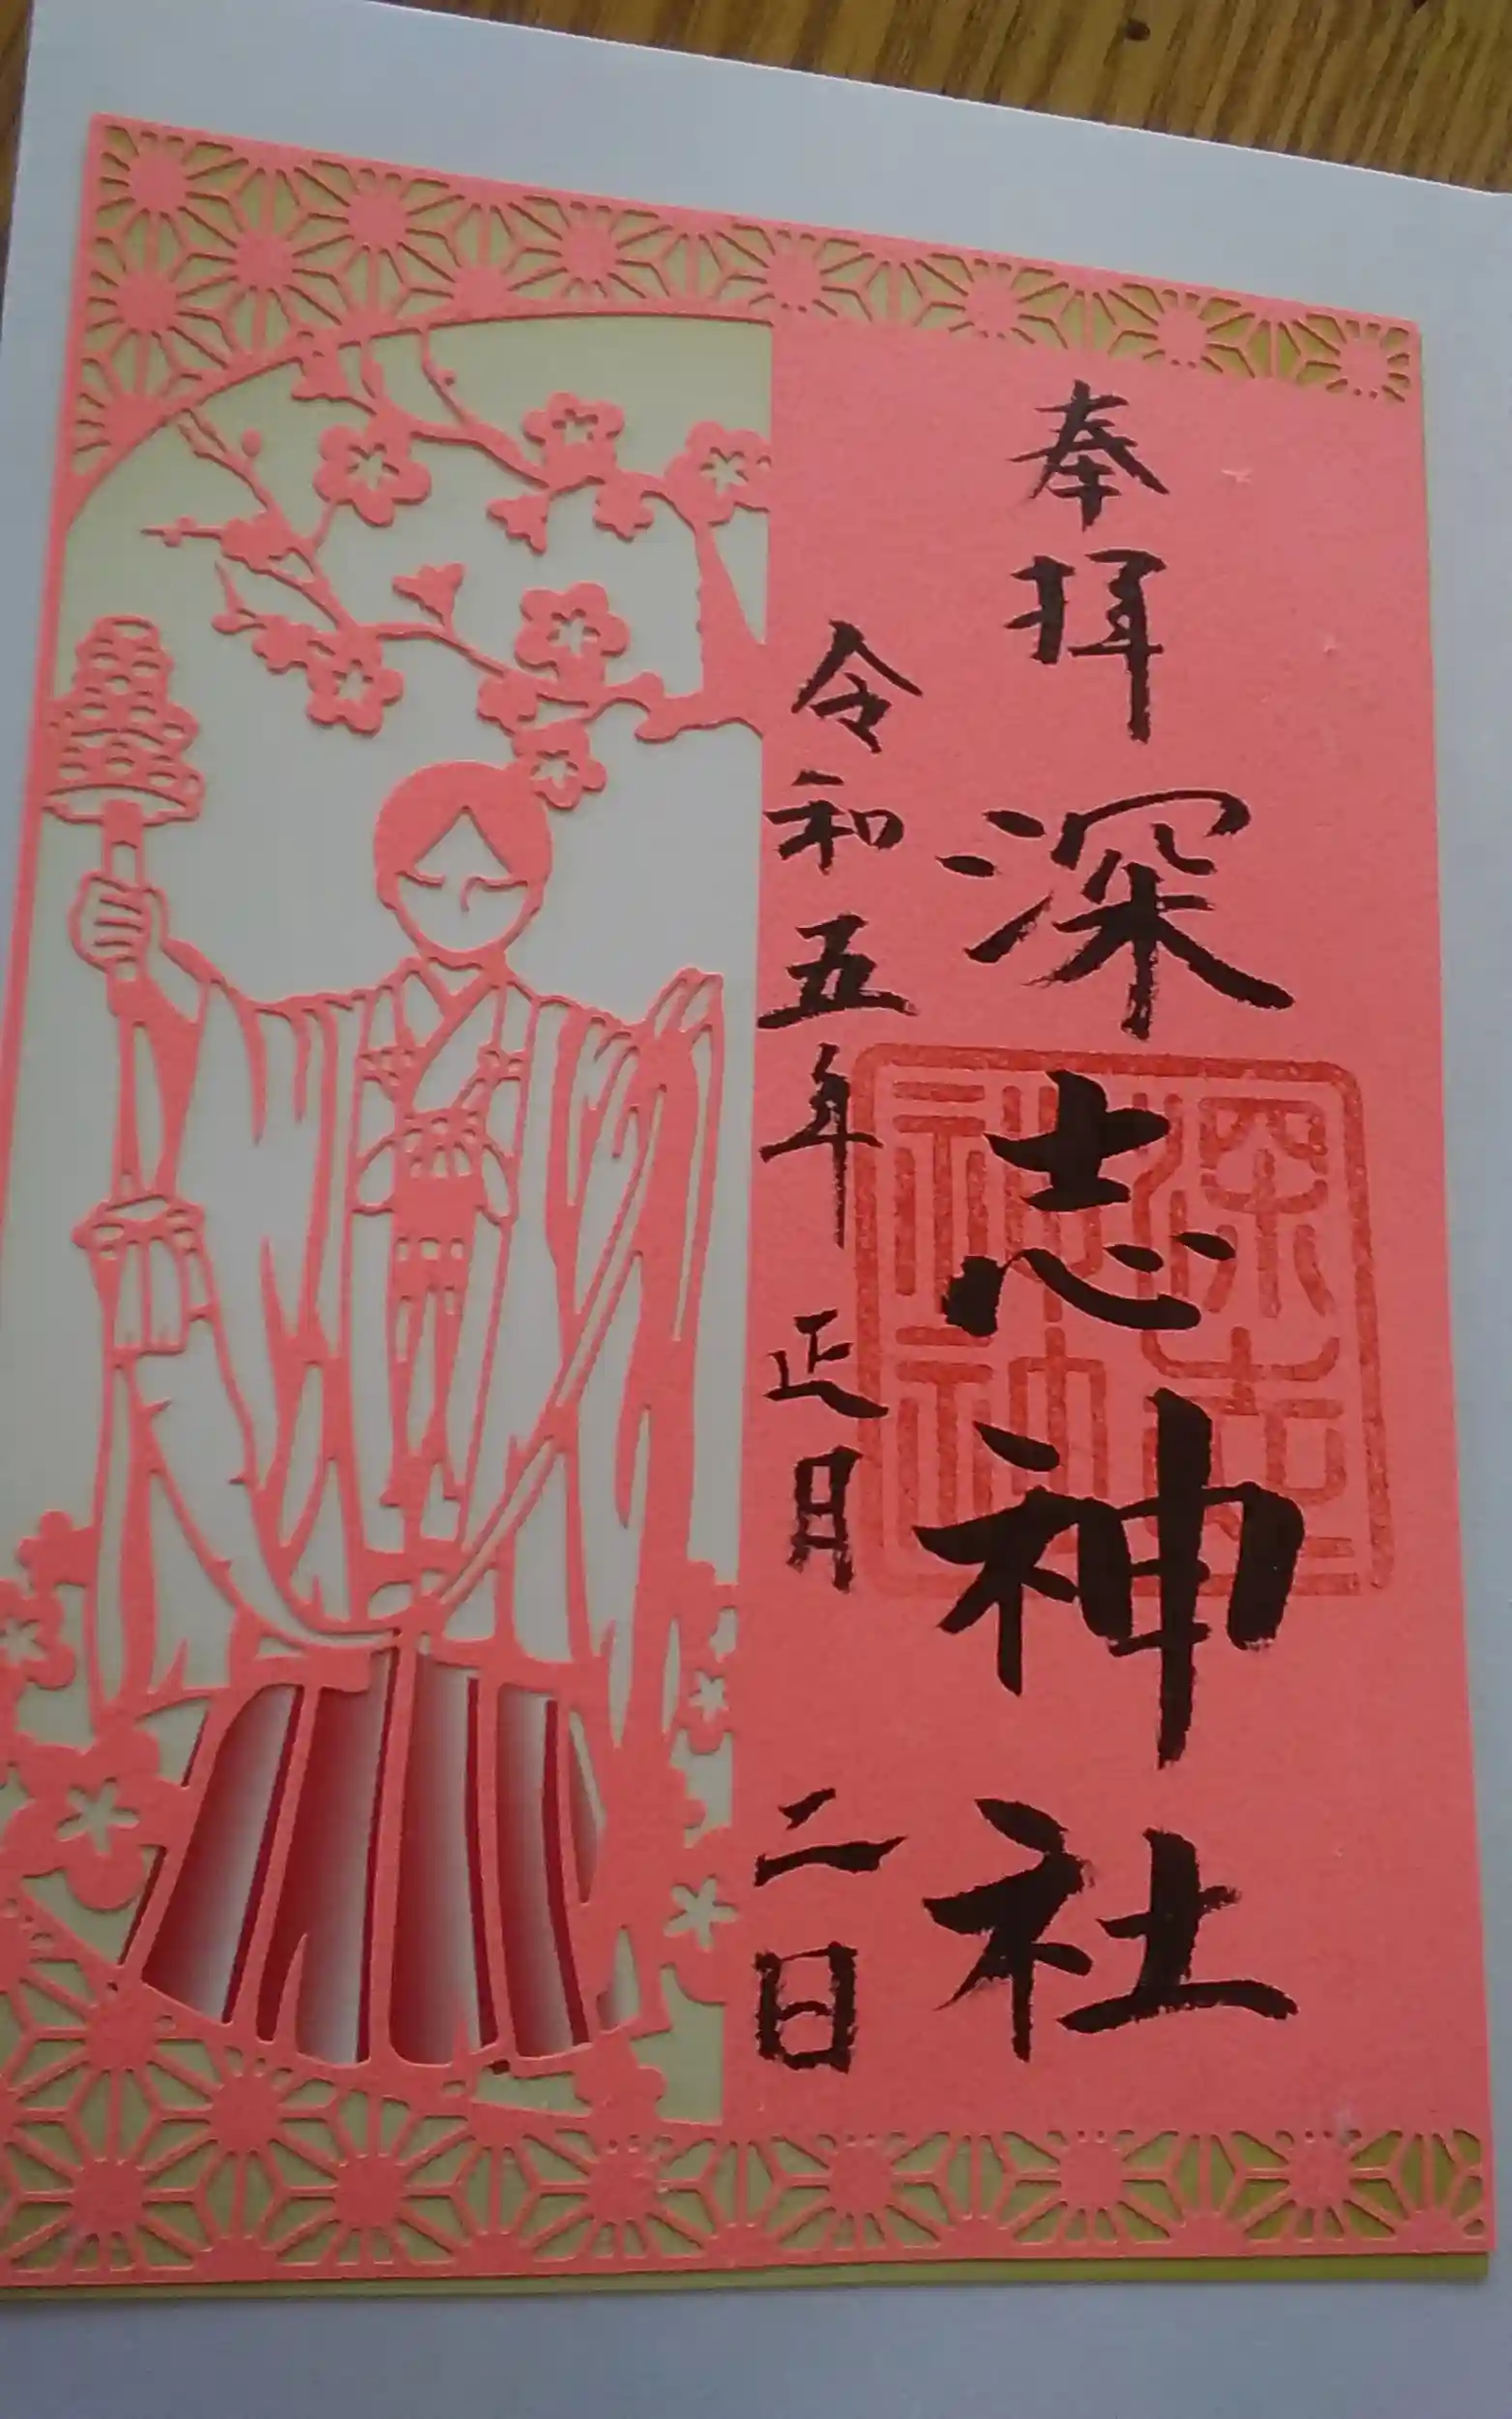 奉拝
深志神社
深志神社
令和五年 正月 二日